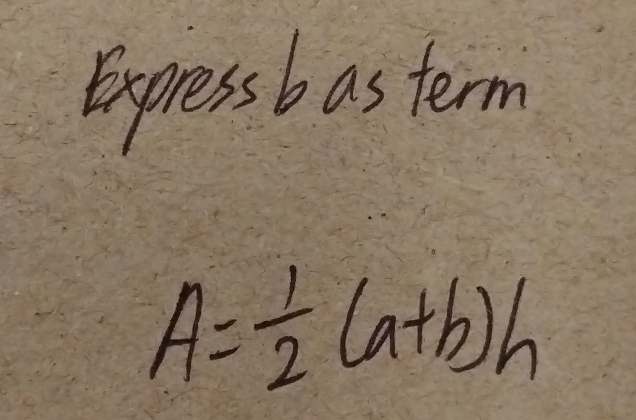 Express b as term
A = 1/2 (a+b)h